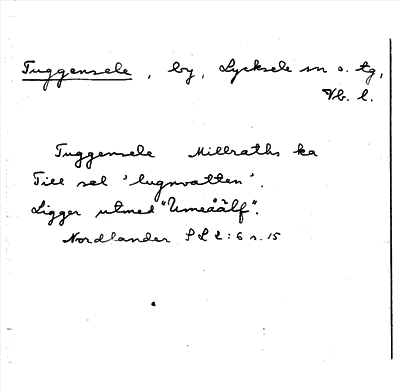 Tuggensele, by, Lycksele sn o. tg,
Vb. l.
Tuggensele Millraths ka
Till sel 'lugnvatten'.
Ligger utmed "Umeåälf".
Nordlander SL 2:6 s. 15